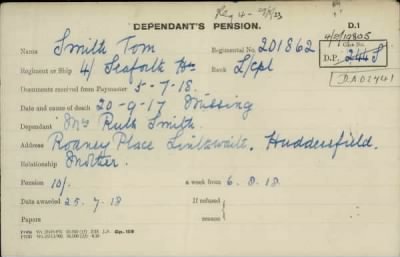 Reg 4 - 27/5/23
DEPENDANT'S PENSION.
D.1
Name Smith Tom Regimental No. 201862
4/S/19805
Case No.
Regiment or Ship 4/ Seaforth Hrs Rank L/cpl
D.P. 244 S
DA02441
Documents received from Paymaster 5-7-18.
Date and cause of death 20-9-17 Missing
Dependant Mrs Ruth Smith.
Address Rodney Place Linthwaite, Huddersfield.
Relationship Mother.
Pension 10/- a week from 6.8.18
Date awarded 25.7.18 If refused
Papers reason